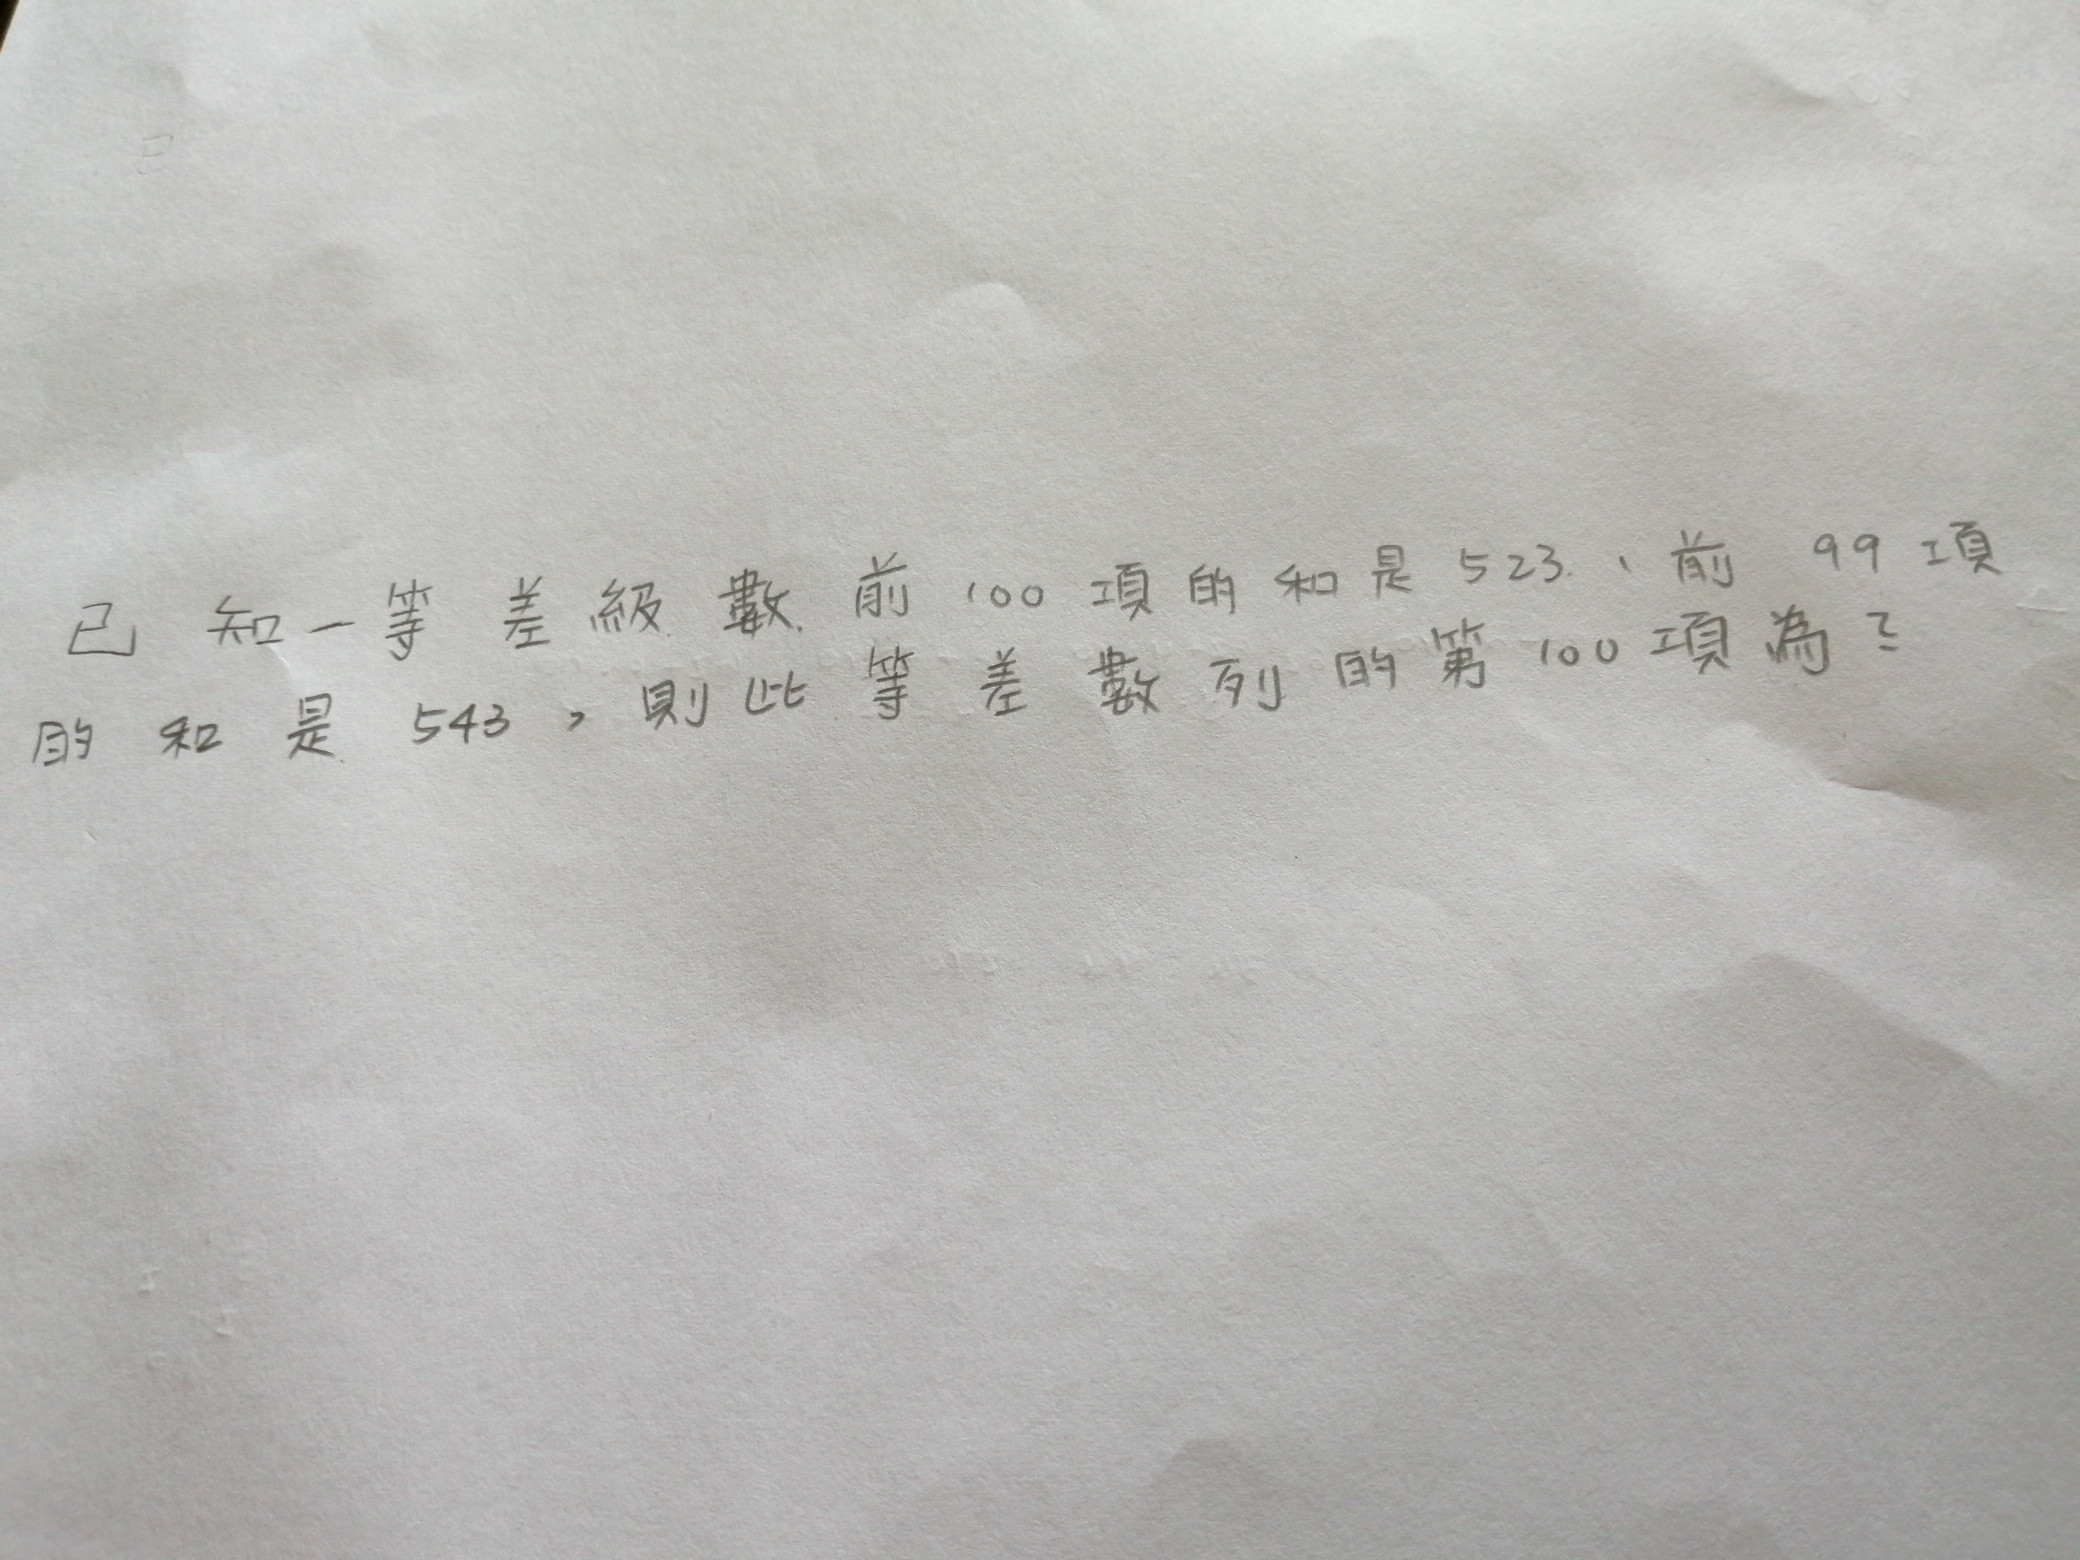 已知一等差級數前100項的和是523、前99項
的和是543，則此等差數列的第100項為？